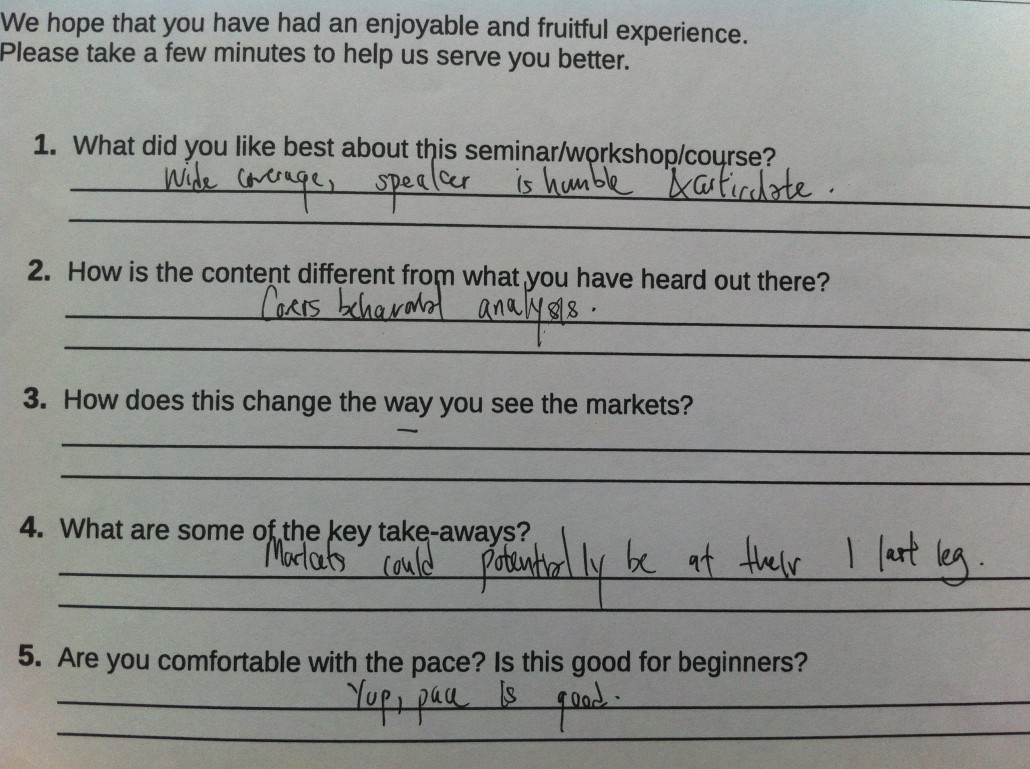 We hope that you have had an enjoyable and fruitful experience.
Please take a few minutes to help us serve you better.
1. What did you like best about this seminar/workshop/course?
Wide coverage, speaker is humble & articulate.
2. How is the content different from what you have heard out there?
Covers behavioral analysis.
3. How does this change the way you see the markets?
4. What are some of the key take-aways?
Markets could potentially be at their last leg.
5. Are you comfortable with the pace? Is this good for beginners?
Yup, pace is good.